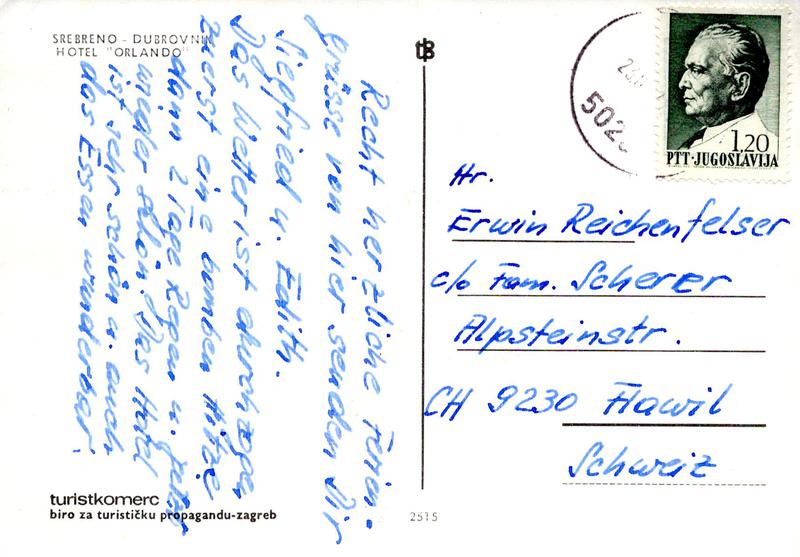 SREBRENO - DUBROVNIK
HOTEL "ORLANDO"
Recht herzliche Ferien-
grüsse von hier senden Dir
Siegfried u. Edith.
Das Wetter ist durchzogen
zuerst eine bomben Hitze
dann 2 Tage Regen u. jetzt
wieder schön. Das Hotel
ist sehr schön u. auch
das Essen wunderbar.
turistkomerc
biro za turističku propagandu-zagreb
2515
502
1,20
PTT·JUGOSLAVIJA
Hr.
Erwin Reichenfelser
c/o Fam. Scherer
Alpsteinstr.
CH 9230 Flawil
Schweiz